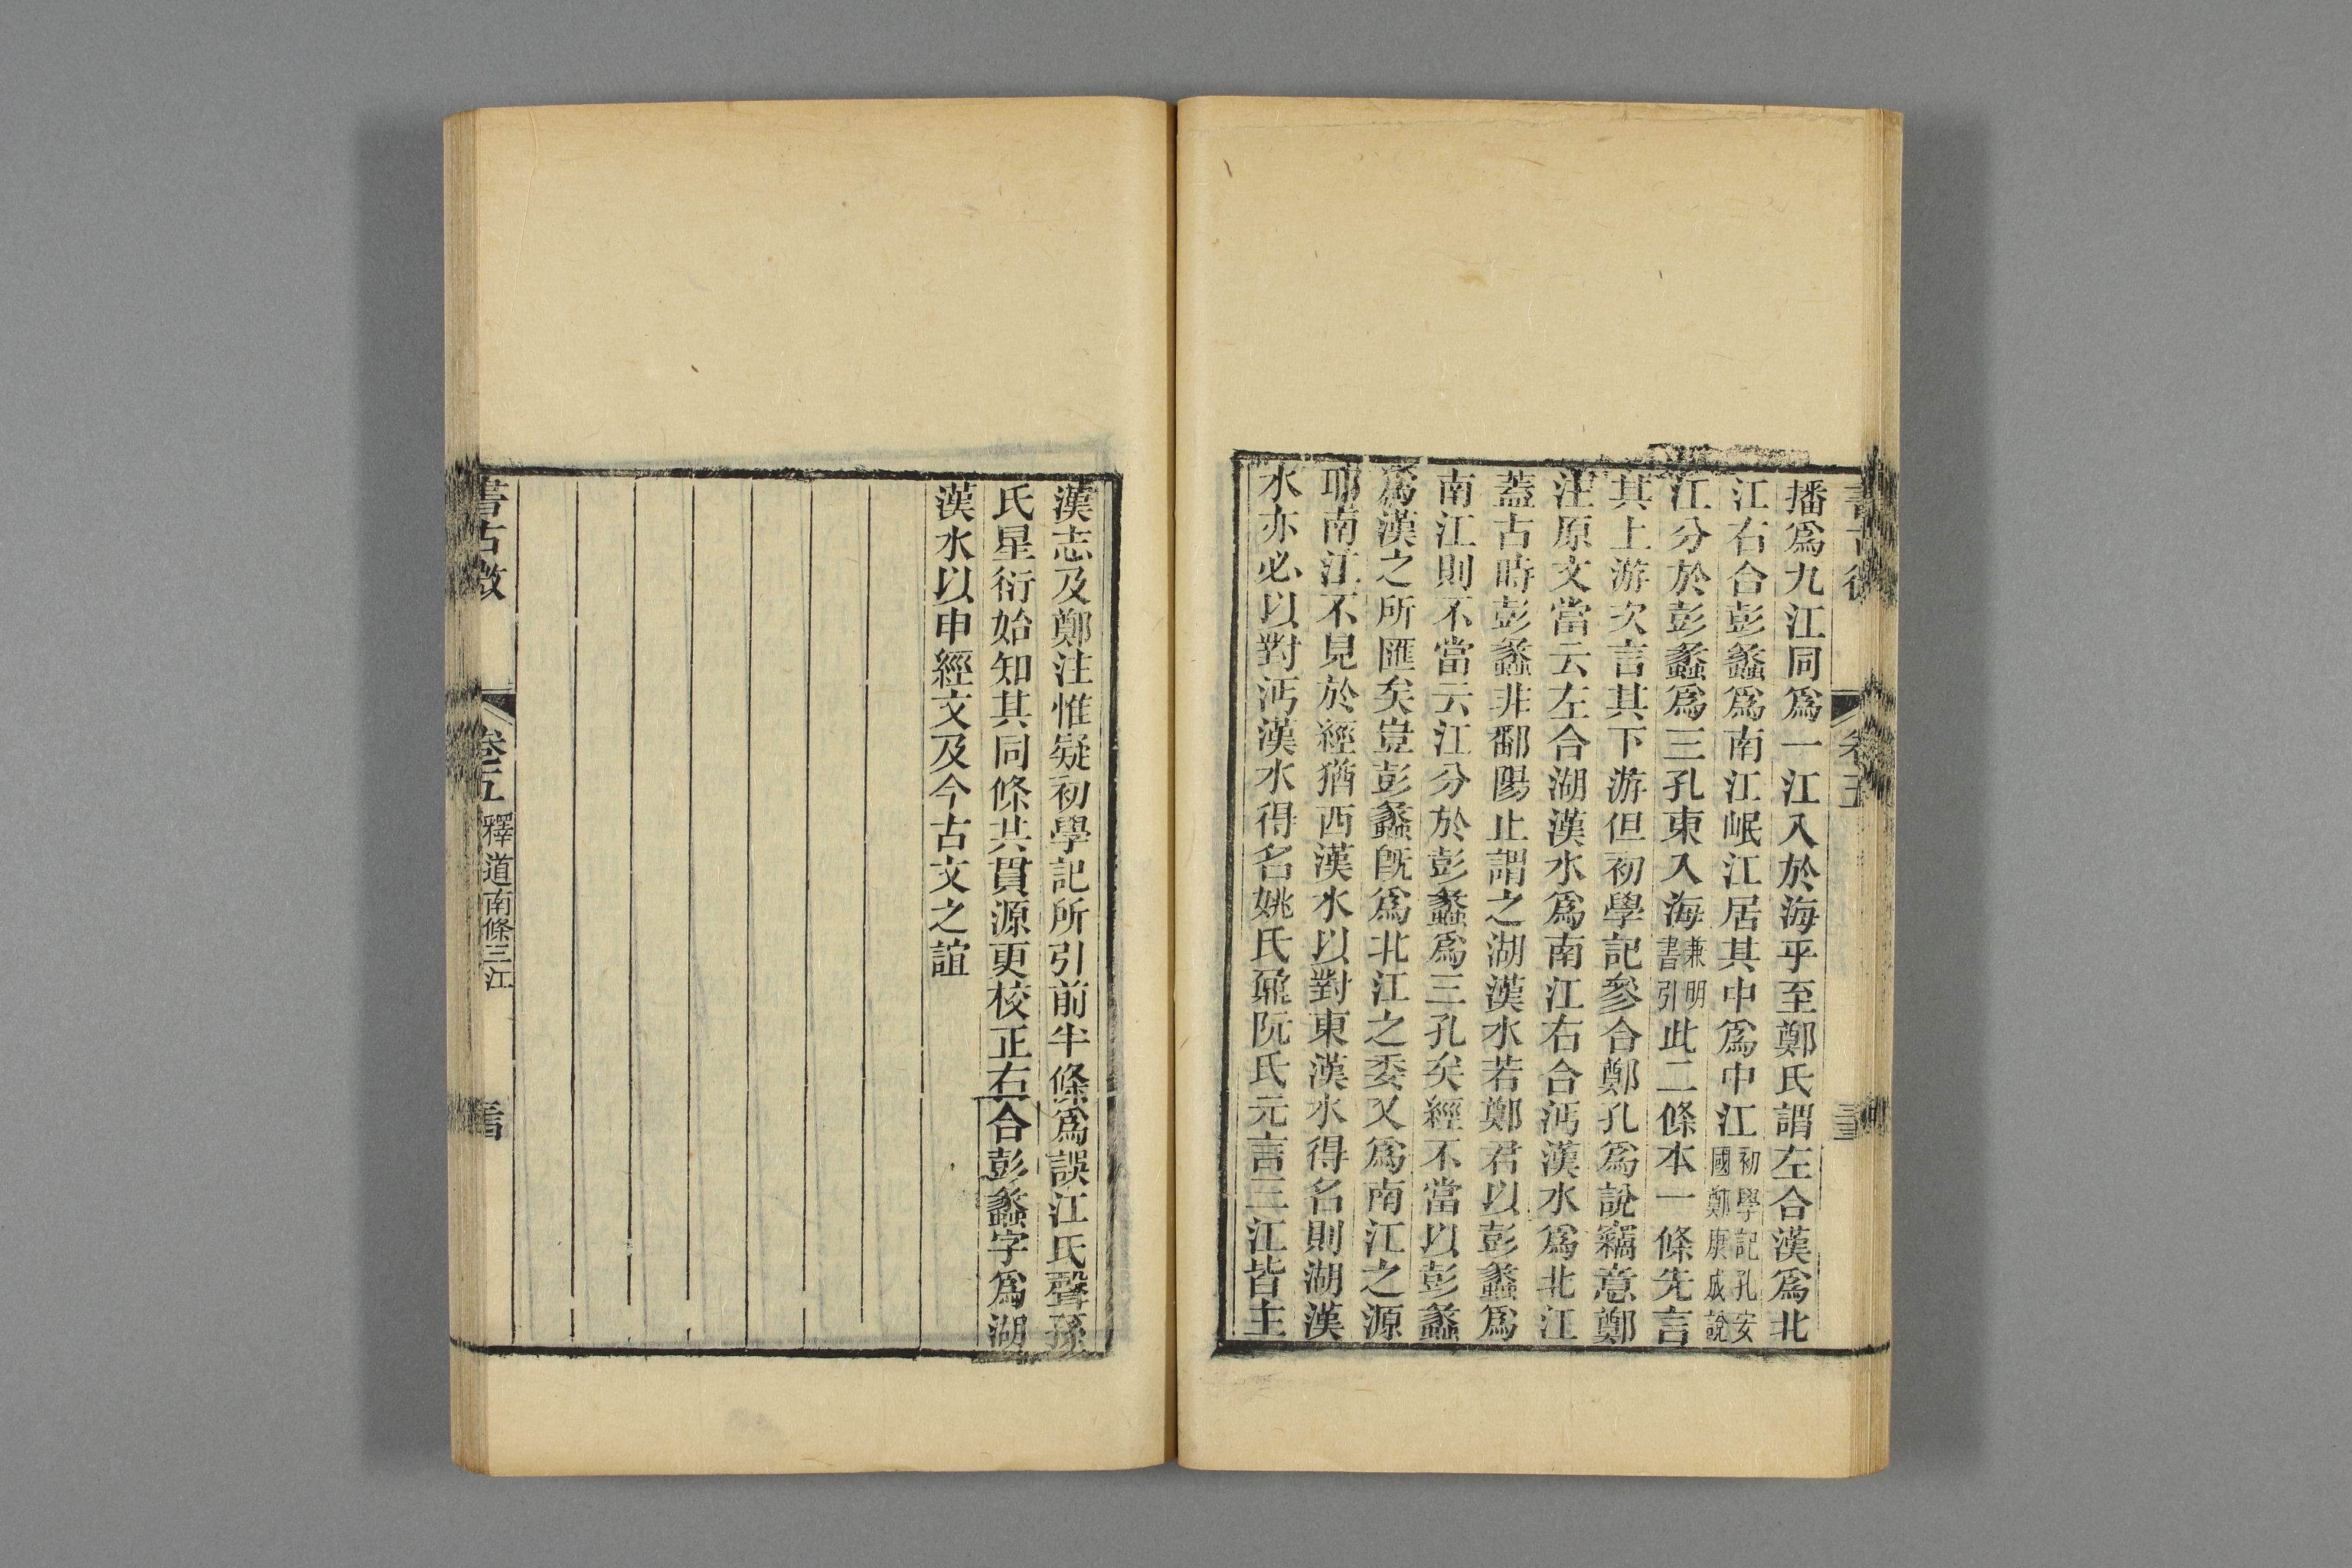 播爲九江同爲一江入於海乎至鄭氏謂左合漢爲北
江右合彭蠡爲南江岷江居其中爲中江初學記孔安國鄭康成說
江分於彭蠡爲三孔東入海兼明書引此二條本一條先言
其上游次言其下游但初學記參合鄭孔爲說竊意鄭
注原文當云左合湖漢水爲南江右合沔漢水爲北江
蓋古時彭蠡非鄱陽止謂之湖漢水若鄭君以彭蠡爲
南江則不當云江分於彭蠡爲三孔矣經不當以彭蠡
爲漢之所匯矣豈彭蠡旣爲北江之委又爲南江之源
耶南江不見於經猶西漢水以對東漢水得名則湖漢
水亦必以對沔漢水得名姚氏鼐阮氏元言三江皆主
漢志及鄭注惟疑初學記所引前半條爲誤江氏聲孫
氏星衍始知其同條共貫源更校正右合彭蠡字爲湖
漢水以申經文及今古文之誼
書古微
卷五
釋道南條三江